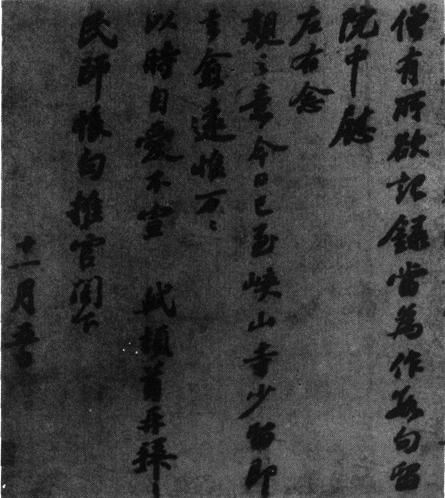 僧有所欲記録當為作數句留
院中慰
左右念
親之意今日已至峽山寺少留即
去愈遠惟万〻
以時自愛不宣 軾頓首再拜
民師帳勾推官閣下
十一月五日